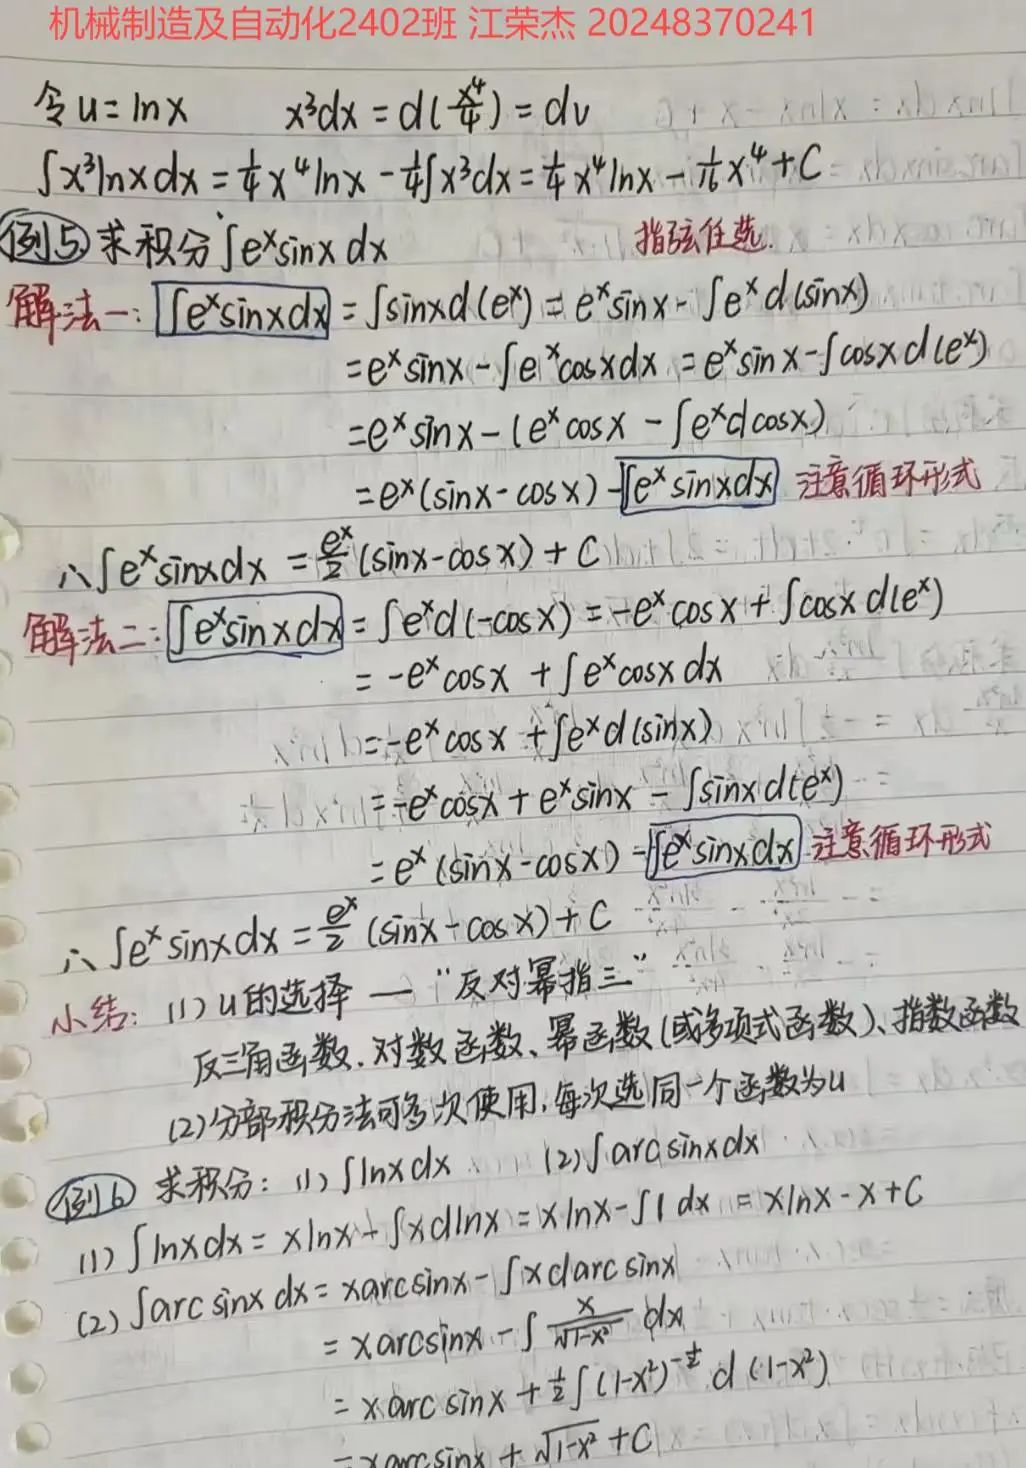 机械制造及自动化2402班 江荣杰 20248370241
令u=lnx x³dx=d(x⁴/4)=dv
∫x³lnxdx=1/4x⁴lnx-1/4∫x³dx=1/4x⁴lnx-1/16x⁴+C
例5 求积分∫eˣsinxdx 指弦任选.
解法一:∫eˣsinxdx=∫sinxd(eˣ)=eˣsinx-∫eˣd(sinx)
=eˣsinx-∫eˣcosxdx=eˣsinx-∫cosxd(eˣ)
=eˣsinx-(eˣcosx-∫eˣdcosx)
=eˣ(sinx-cosx)-∫eˣsinxdx 注意循环形式
∴∫eˣsinxdx=eˣ/2(sinx-cosx)+C
解法二:∫eˣsinxdx=∫eˣd(-cosx)=-eˣcosx+∫cosxd(eˣ)
=-eˣcosx+∫eˣcosxdx
=-eˣcosx+∫eˣd(sinx)
=-eˣcosx+eˣsinx-∫sinxd(eˣ)
=eˣ(sinx-cosx)-∫eˣsinxdx 注意循环形式
∴∫eˣsinxdx=eˣ/2(sinx-cosx)+C
小结:(1)u的选择—“反对幂指三”
反三角函数、对数函数、幂函数(或多项式函数)、指数函数
(2)分部积分法可多次使用,每次选同一个函数为u
例6 求积分:(1)∫lnxdx (2)∫arcsinxdx
(1)∫lnxdx=xlnx-∫xdlnx=xlnx-∫1dx=xlnx-x+C
(2)∫arcsinxdx=xarcsinx-∫xdarcsinx
=xarcsinx-∫x/√(1-x²)dx
=xarcsinx+1/2∫(1-x²)^(-1/2)d(1-x²)
=xarcsinx+√(1-x²)+C